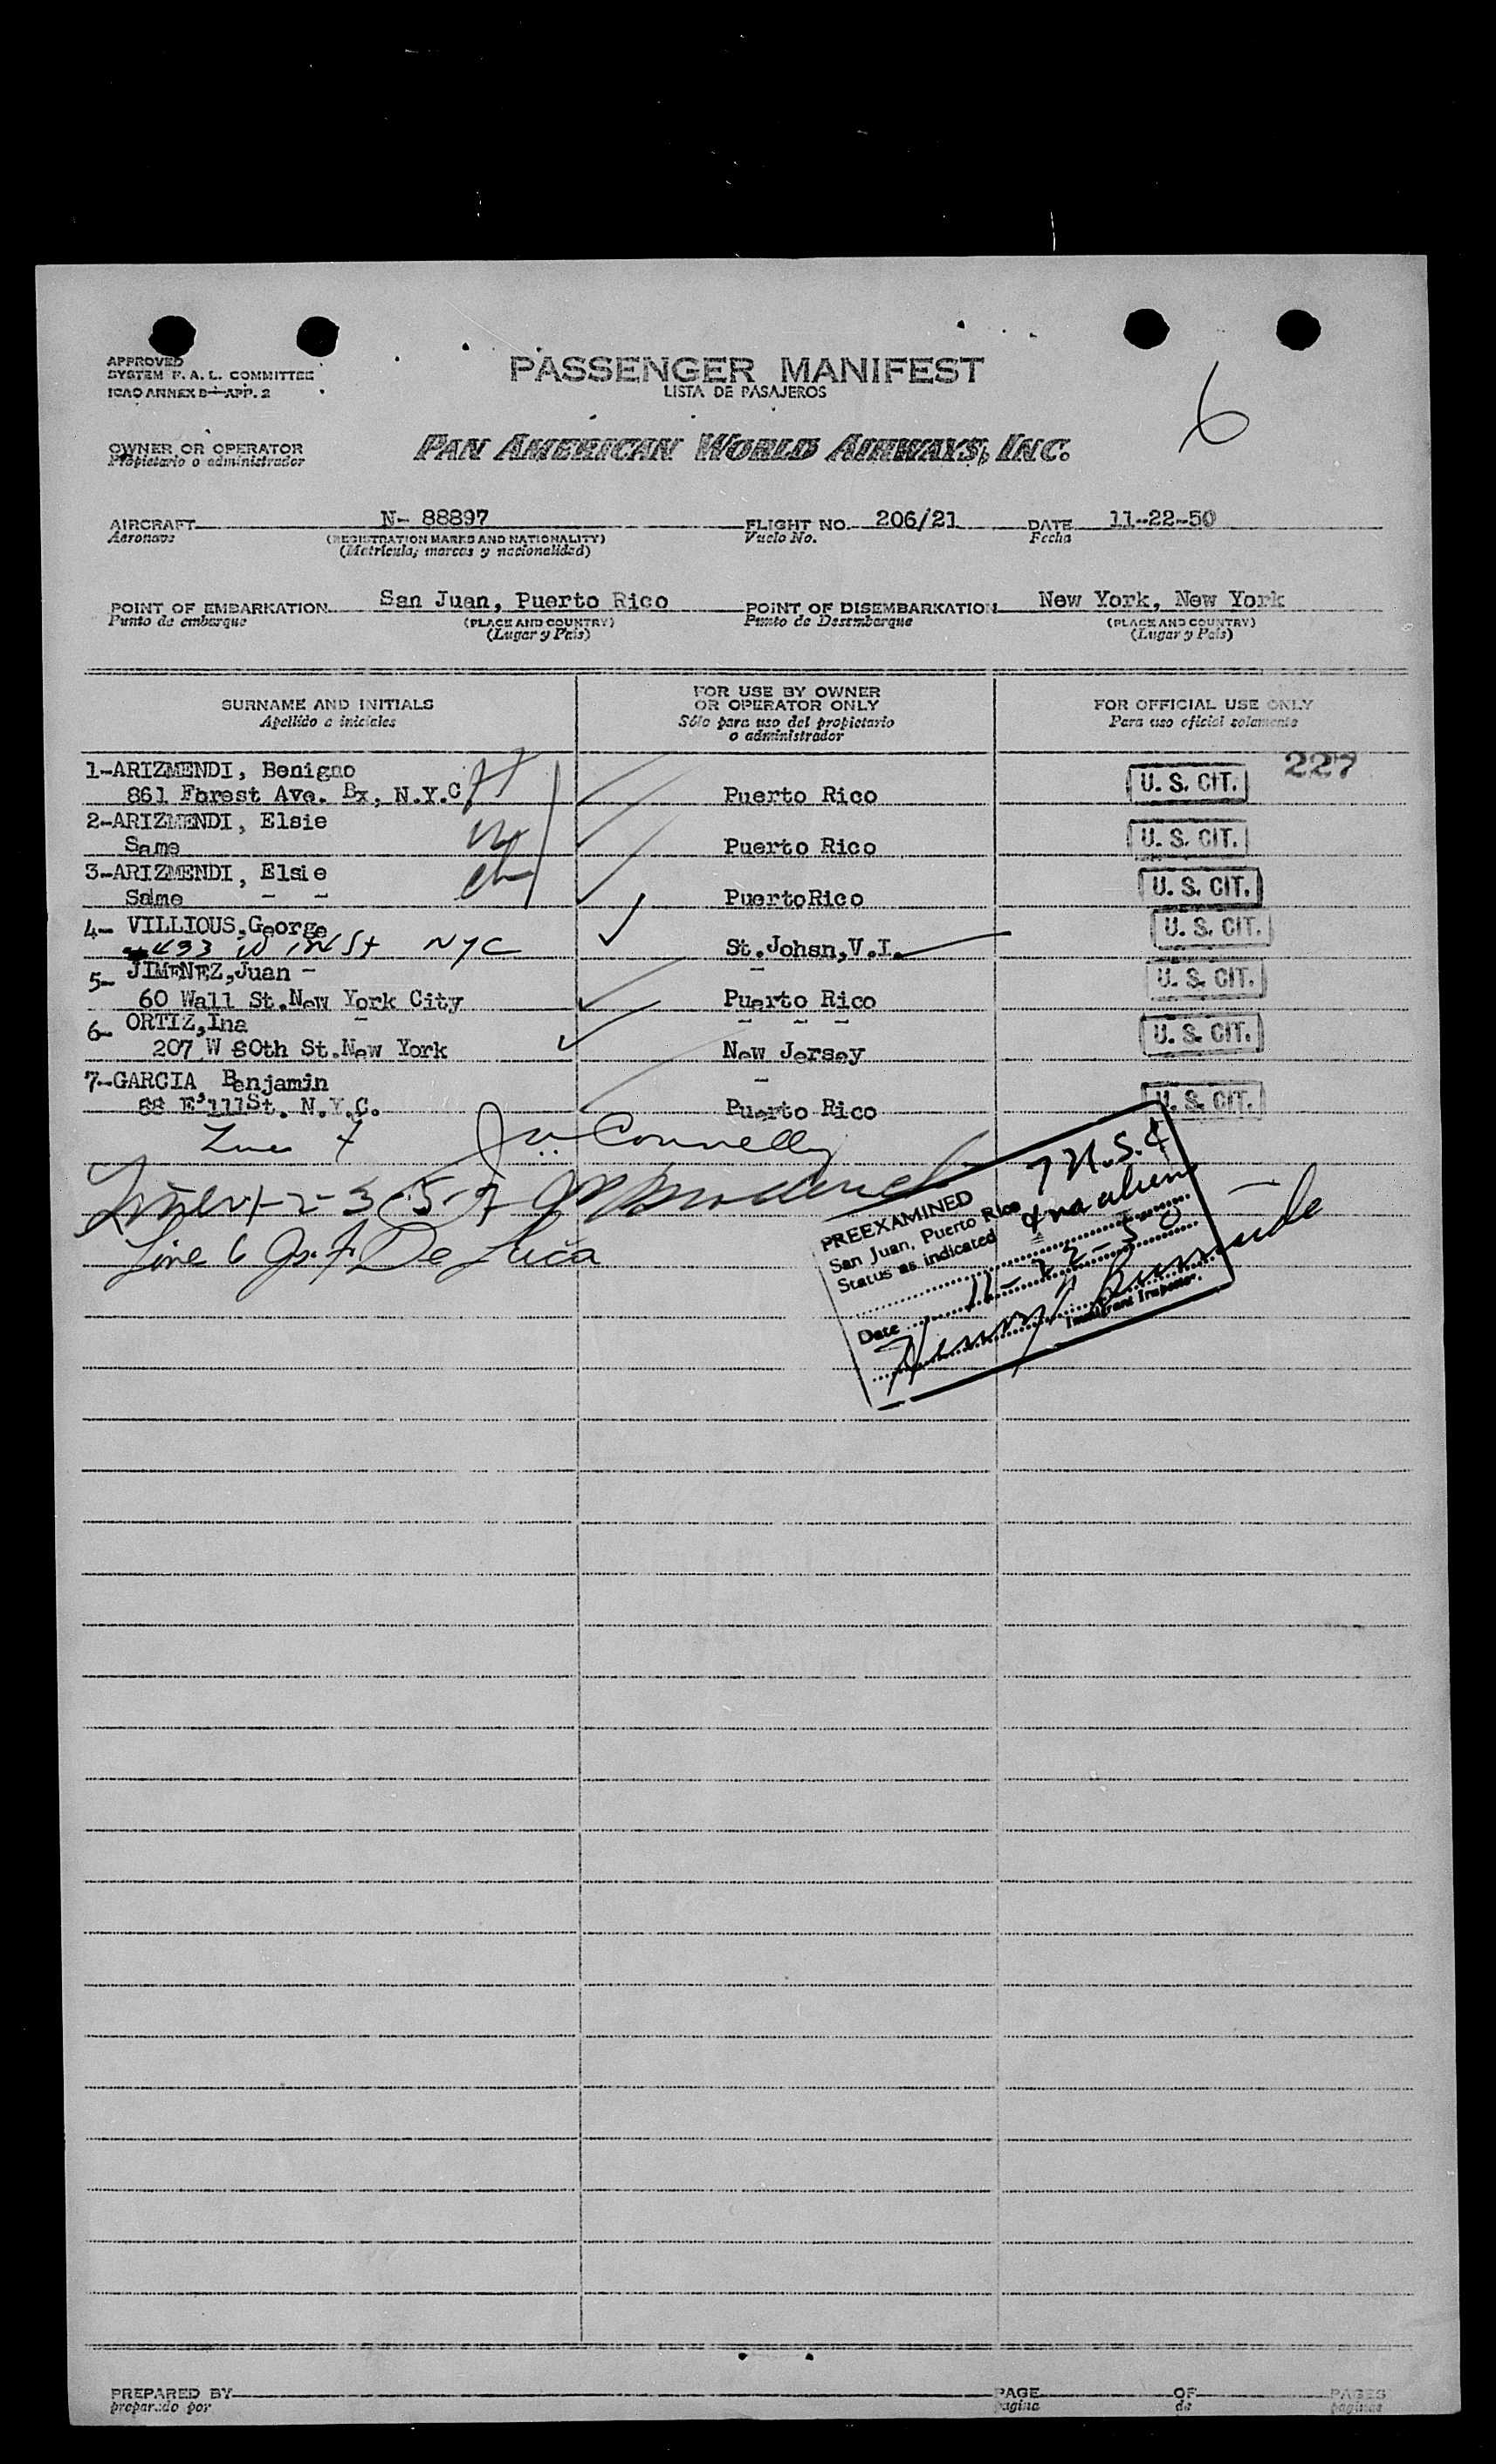 APPROVED
SYSTEM F. A. L. COMMITTEE
ICAO ANNEX 9—APP. 2
PASSENGER MANIFEST
LISTA DE PASAJEROS
6
OWNER OR OPERATOR
Propietario o administrador
PAN AMERICAN WORLD AIRWAYS, INC.
AIRCRAFT N- 88897 FLIGHT NO. 206/21 DATE 11-22-50
Aeronave (REGISTRATION MARKS AND NATIONALITY) Vuelo No. Fecha
(Matricula, marcas y nacionalidad)
POINT OF EMBARKATION San Juan, Puerto Rico POINT OF DISEMBARKATION New York, New York
Punto de embarque (PLACE AND COUNTRY) Punto de Desembarque (PLACE AND COUNTRY)
(Lugar y País) (Lugar y País)
SURNAME AND INITIALS FOR USE BY OWNER OR OPERATOR ONLY FOR OFFICIAL USE ONLY
Apellido e iniciales Sólo para uso del propietario o administrador Para uso oficial solamente
227
1-ARIZMENDI, Benigno
861 Forest Ave. Bx, N.Y.C Puerto Rico U. S. CIT.
2-ARIZMENDI, Elsie
Same Puerto Rico U. S. CIT.
3-ARIZMENDI, Elsie
Same - - PuertoRico U. S. CIT.
4- VILLIOUS,George
W St NYC St.Johsn,V.I. U. S. CIT.
5- JIMENEZ,Juan -
60 Wall St.New York City Puerto Rico U. S. CIT.
6- ORTIZ,Ina
207 W 80th St.New York New Jersey U. S. CIT.
7-GARCIA, Benjamin
E 111St. N.Y.C. Puerto Rico U. S. CIT.
Connelly
1-2-3-5-7
Line 6 De Luca
PREEXAMINED
San Juan, Puerto Rico 7 U.S.C
Status as indicated & no alien
Date 11-22-50
Henry Burnside
Immigrant Inspector.
PREPARED BY PAGE OF PAGES
preparado por pagina de paginas